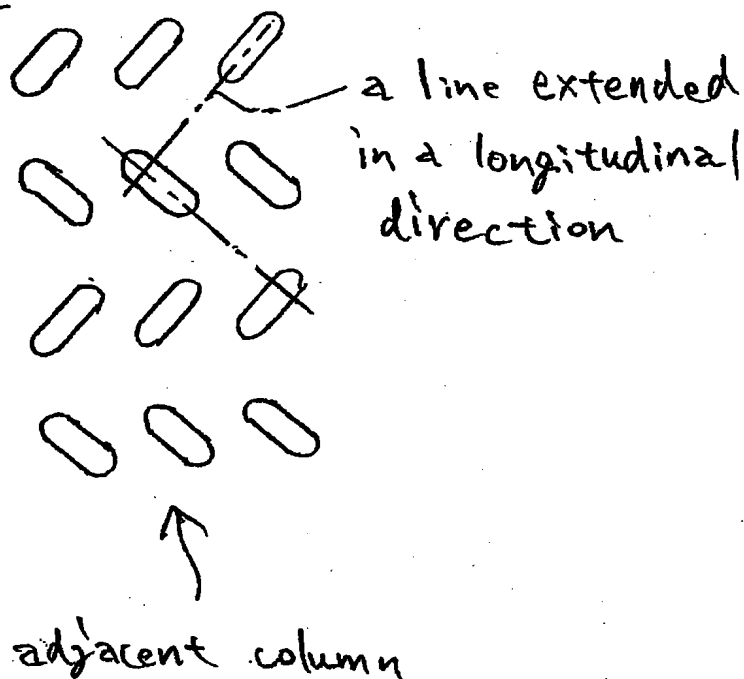 a line extended
in a longitudinal
direction
adjacent column